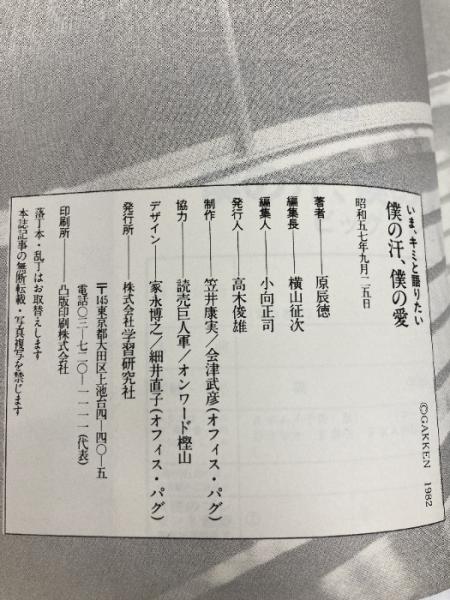 いま、キミと語りたい
僕の汗、僕の愛
昭和五七年九月二五日
著者──原辰徳
編集長──横山征次
編集人──小向正司
発行人──高木俊雄
制作──笠井康実/会津武彦(オフィス・パグ)
協力──読売巨人軍/オンワード樫山
デザイン──家永博之/細井直子(オフィス・パグ)
発行所──株式会社学習研究社
〒145東京都大田区上池台四―四〇―五
電話〇三―七二〇―一一一一(代表)
印刷所──凸版印刷株式会社
落丁本・乱丁はお取替えします
本誌記事の無断転載・写真複写を禁じます
©GAKKEN 1982